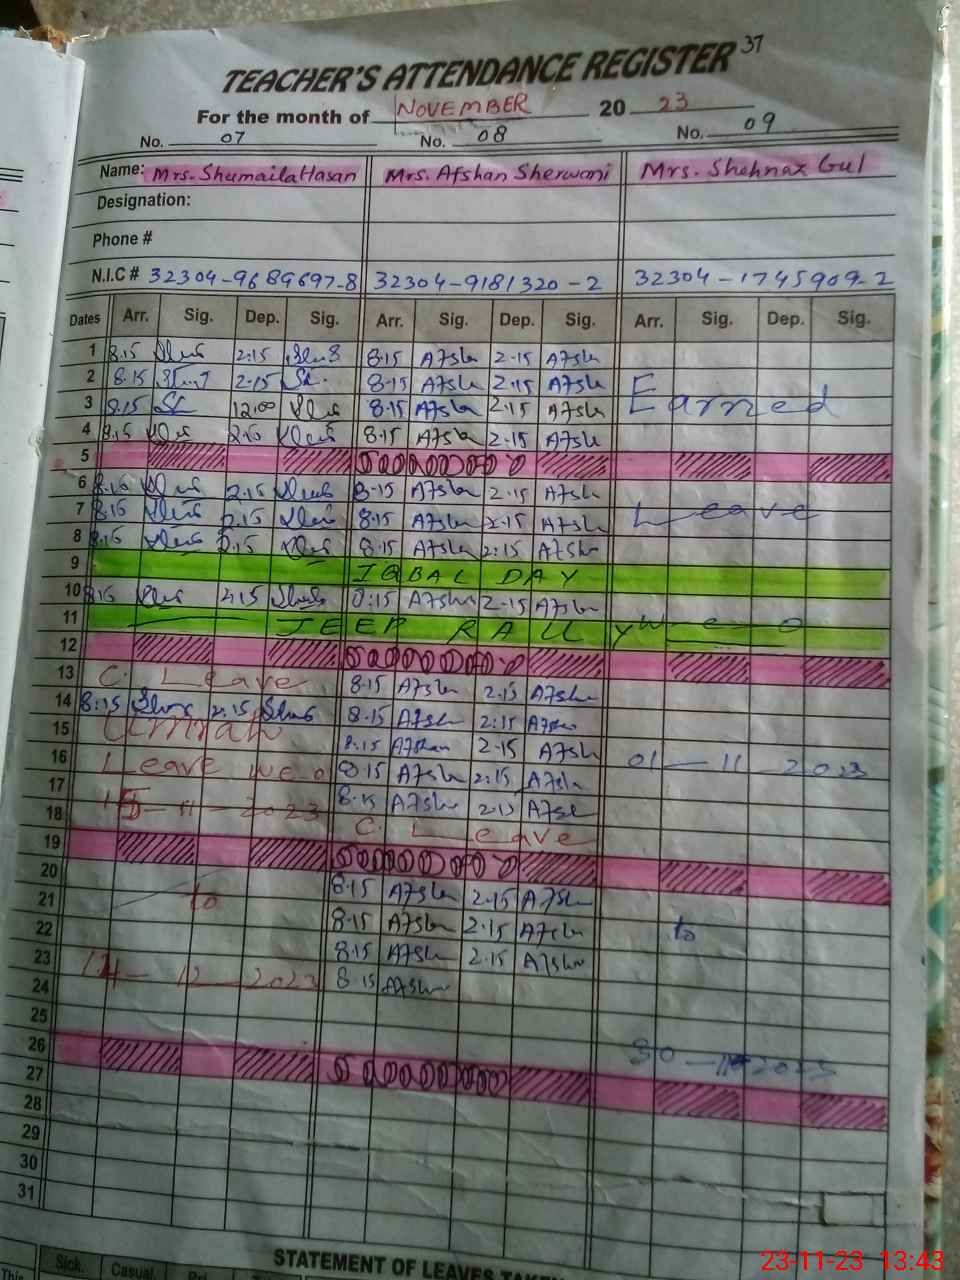 37
TEACHER'S ATTENDANCE REGISTER
For the month of NOVEMBER 20 23
No. 07 No. 08 No. 09
Name: Mrs. Shumaila Hasan Mrs. Afshan Sherwani Mrs. Shehnaz Gul
Designation:
Phone #
N.I.C # 32304-9689697-8 32304-9181320-2 32304-1745909-2
Dates Arr. Sig. Dep. Sig. Arr. Sig. Dep. Sig. Arr. Sig. Dep. Sig.
1 8.15 2:15 8.15 Afsh 2.15 Afsh
2 8.15 2.15 8.15 Afsh 2.15 Afsh Earned
3 8.15 12.00 8.15 Afsh 2.15 Afsh
4 8.15 2.15 8.15 Afsh 2.15 Afsh
5
6 8.15 2.15 8.15 Afsh 2.15 Afsh
7 8.15 2.15 8.15 Afsh 2.15 Afsh Leave
8 8.15 2.15 8.15 Afsh 2:15 Afsh
9 IQBAL DAY
10 8.15 2.15 8:15 Afsh 2.15 Afsh
11 JEEP RALLY w e o
12
13 C. Leave 8.15 Afsh 2.15 Afsh
14 8:15 2.15 8.15 Afsh 2:15 Afsh
15 Umrah 8.15 Afshan 2.15 Afsh
16 Leave w e o 8.15 Afsh 2:15 Afsh 01 - 11 - 2023
17 8.15 Afsh 2.15 Afsh
18 15 - 11 - 2023 C. Leave
19
20 8.15 Afsh 2.15 Afsh
21 to 8.15 Afsh 2.15 Afsh
22 8.15 Afsh 2.15 Afsh to
23 8.15 Afsh
24 14 - 12 - 2023
25
26 30 - 11 - 2023
27
28
29
30
31
STATEMENT OF LEAVES TAKEN
This Sick. Casual
23-11-23 13:43